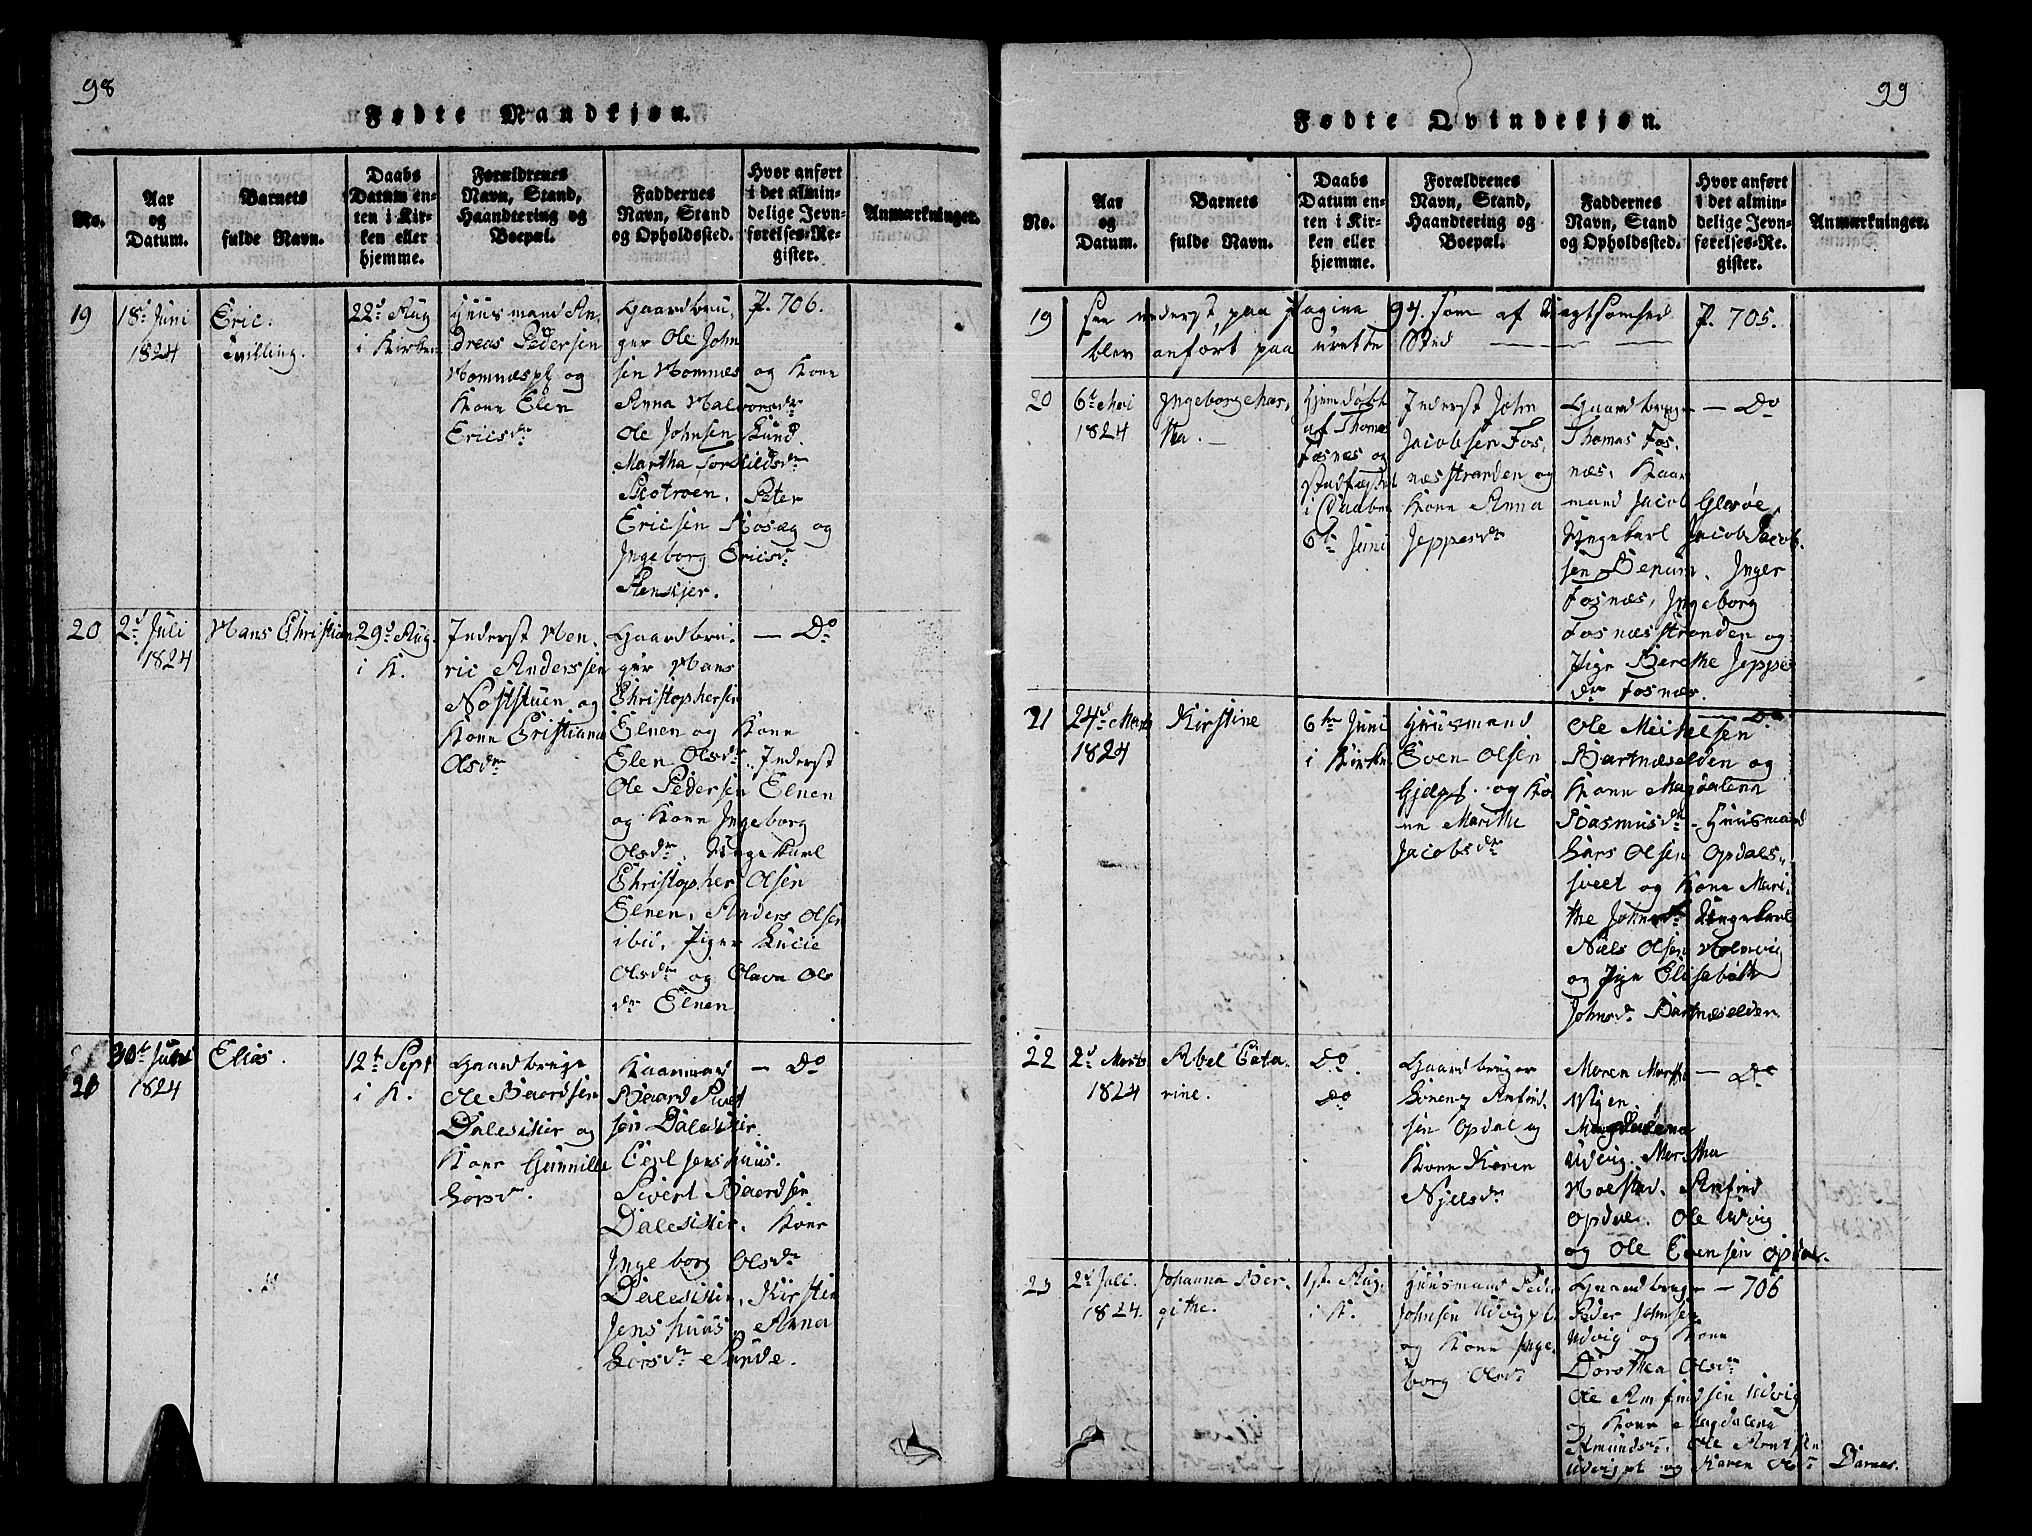 98
Fødte Mandkjøn.
No.
Aar
og
Datum.
Barnets
fulde Navn.
Daabs
Datum en-
ten i Kir-
ken eller
hjemme.
Forældrenes
Navn, Stand,
Haandtering og
Boepæl.
Faddernes
Navn, Stand
og Opholdssted.
Hvor anført
i det almin-
delige Jevn-
førelses-Re-
gister.
Anmærkninger.
19
18d Juni
1824
Eric.
Tvilling.
22d Aug
i Kirken
Huusmand An-
dreas Pedersen
Homnæspl og
Kone Elen
Ericsdr
Gaardbru-
ger Ole John
sen Homnæs og Kone
Anna Halvorsdr
Ole Johnsen Lund.
Martha Torkildsdr
Peter
Ericsen Rosæg og
Ingeborg Ericsdr
Stenkjer.
p. 706.
20
2d Juli
1824
Hans Christian
29d Aug.
i K.
Inderst Hen-
ric Anderssen
Nøststuen og
Kone Cristiana
Olsdr
Gaardbru-
ger Hans
Christophersen
Elnen og Kone
Elen Olsdr. Inderst
Ole Pedersen Elnen
og Kone Ingeborg
Olsdr. Ungekarl
Christopher Olsen
Elnen, Anders Olsen
ibid. Piger Lucie
Olsdr og Olava Ols
dr Elnen
— Do
20
30t Juni
1824
Elias.
12te Sept
i K.
Gaardbruger
Ole Baardsen
Dalesitter og
Kone Gunnille
Larsdr.
Kaarmand
Baard Sivert
sen Dalesitter.
Jenshuus.
Sivert Baardsen
Dalesitter. Kone
Ingeborg Olsdr
Dalesitter, Kirsten
Jenshuus. Anna
Larsdr Sunde.
— Do
99
Fødte Qvindekjøn.
No.
Aar
og
Datum.
Barnets
fulde Navn.
Daabs
Datum en-
ten i Kir-
ken eller
hjemme.
Forældrenes
Navn, Stand,
Haandtering og
Boepæl.
Faddernes
Navn, Stand
og Opholdssted.
Hvor anført
i det almin-
delige Jevn-
førelses-Re-
gister.
Anmærkninger.
19
see nederst paa pagina 94. som af Uagtsomhed
blev anført paa urette Sted
p. 705.
20
6t Mai
1824
Ingeborg Mar-
tha. —
Hjemdøbt
af Thomas
Fosnæs og
stadfæstet
i Daaben
6te Juni
Inderst John
Jacobsen Fos-
næsstranden og
Kone Anna
Jeppesdr
Gaardbruger
Thomas Fos-
næs. Kaar
mand Jacob Glasøe,
Ungekarl Jacob Jacob-
sen Benum. Inger
Fosnæs, Ingeborg
Fosnæsstranden og
Pige Berethe Jeppes
dr Fosnæs.
— Do
21
24d Marts
1824
Kirstine
6te Juni
i Kirken
Huusmand
Even Olsen
Gjelpl. og Ko-
ne Marithe
Jacobsdr
Ole Michelsen
Bartnæselden og
Kone Magdalena
Rasmusdr. Huusmand
Lars Olsen Opdals-
sveet og Kone Mari-
the Johnsdr Ungekarl
Niels Olsen Holmvig
og Pige Elisabeth
Johnsdr Bartnæselden
— Do
22
2d Marts
1824
Abel Cata-
rine.
Do.
Do
Gaardbruger
Lorentz Amfind-
sen Opdal og
Kone Karen
Njelsdr
Maren Martha
Vigen.
Magdalena
Udvig. Martha
Holstad. Amfind
Opdal. Ole Udvig
og Ole Evensen Opdal.
— Do
23
2d Juli.
1824.
Johanna Ber-
githe.
1st Aug.
i K.
Huusmand Peder
Johnsen Udvigpl.
og Kone Inge-
borg Olsdr
Gaardbruger
Peder Johnsen
Udvig og Kone
Dorothea Olsdr
Ole Amfindsen Udvig
og Kone Magdalena
Amundsdr. Ole Arntsen
Udvigpl og Karen
— 706